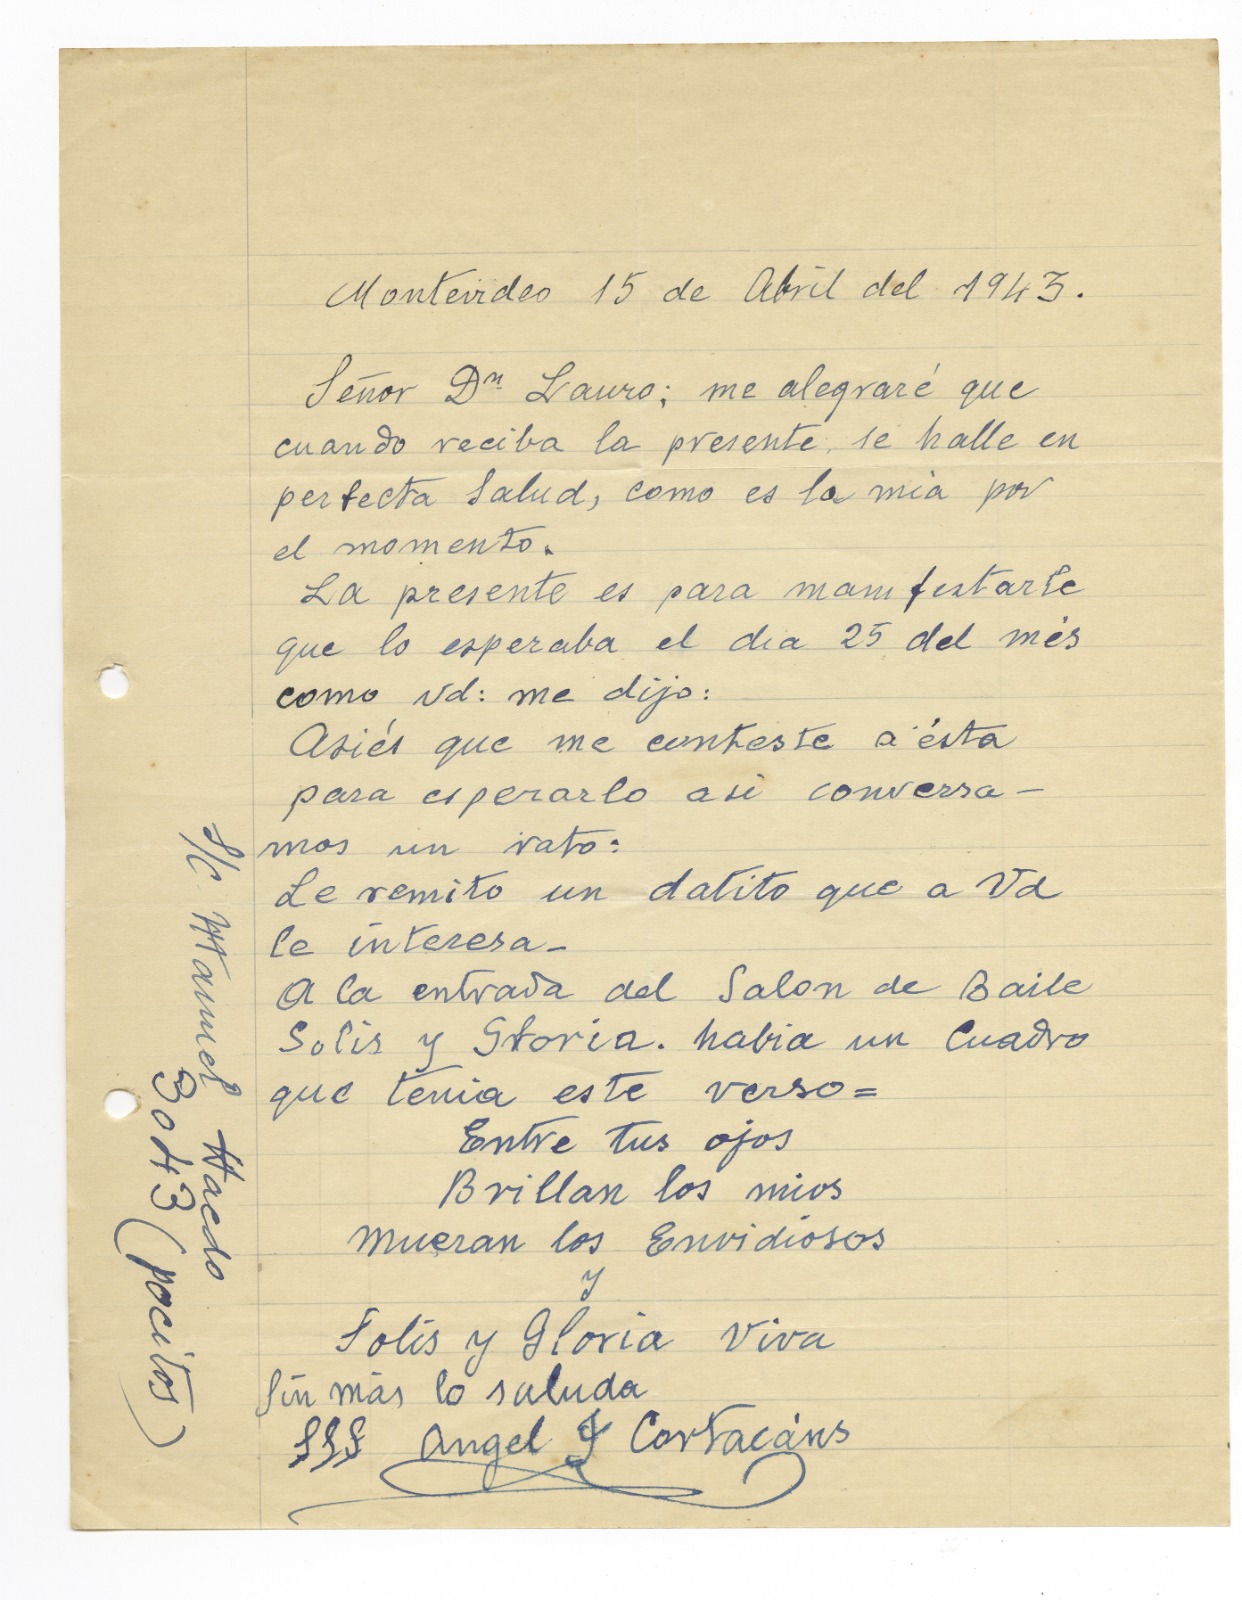 Montevideo 15 de Abril del 1943.
Señor Dn Lauro; me alegraré que
cuando reciba la presente, se halle en
perfecta Salud, como es la mia por
el momento.
La presente es para manifestarle
que lo esperaba el dia 25 del més
como Vd: me dijo:
Asiés que me conteste a ésta
para esperarlo asi conversa-
mos un rato:
Le remito un datito que a Vd
le interesa-
A la entrada del Salon de Baile
Solis y Gloria. habia un Cuadro
que tenia este verso=
Entre tus ojos
Brillan los mios
Mueran los Envidiosos
y
Solis y Gloria Viva
Sin más lo saluda
SSS Angel J Cortacáns
S/C. Manuel Haedo
3043 (pocitos)